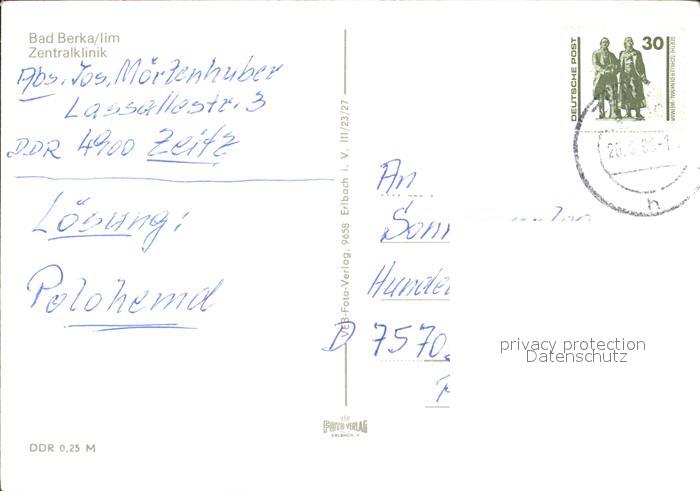 Bad Berka/Ilm
Zentralklinik
Abs. Jos. Mörtenhuber
Lassallestr. 3
DDR 4900 Zeitz
Lösung:
Polohemd
DDR 0,25 M
VEB-Foto-Verlag, 9658 Erlbach i. V. III/23/27
VERLAG
ERLBACH-V.
DEUTSCHE POST
30
h
An
Sonn
Hunde
D 7570
privacy protection
Datenschutz